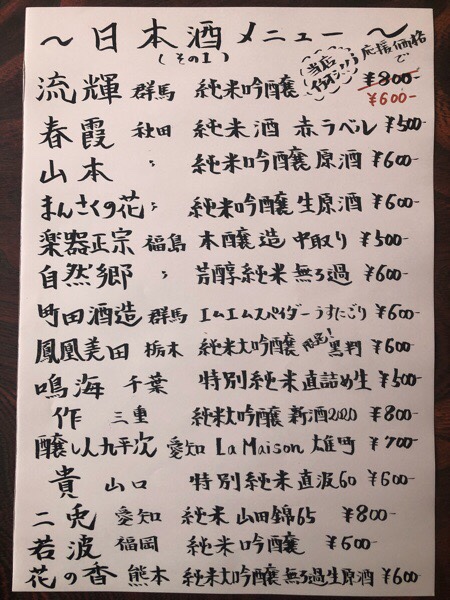 ～日本酒メニュー～
(その1)
当店イチオシ!!
応援価格で
流輝 群馬 純米吟醸 ¥800-
¥600-
春霞 秋田 純米酒 赤ラベル ¥500-
山本 〃 純米吟醸原酒 ¥600-
まんさくの花 〃 純米吟醸生原酒 ¥600-
楽器正宗 福島 本醸造 中取り ¥500-
自然郷 〃 芳醇純米無ろ過 ¥600-
町田酒造 群馬 エムエムスパイダーうすにごり ¥600-
鳳凰美田 栃木 純米大吟醸 限定!黒判 ¥600-
鳴海 千葉 特別純米直詰め生 ¥500-
作 三重 純米大吟醸 新酒2020 ¥800-
醸し人九平次 愛知 La Maison 雄町 ¥700-
貴 山口 特別純米直汲60 ¥600-
二兎 愛知 純米 山田錦65 ¥800-
若波 福岡 純米吟醸 ¥600-
花の香 熊本 純米大吟醸無ろ過生原酒 ¥600-